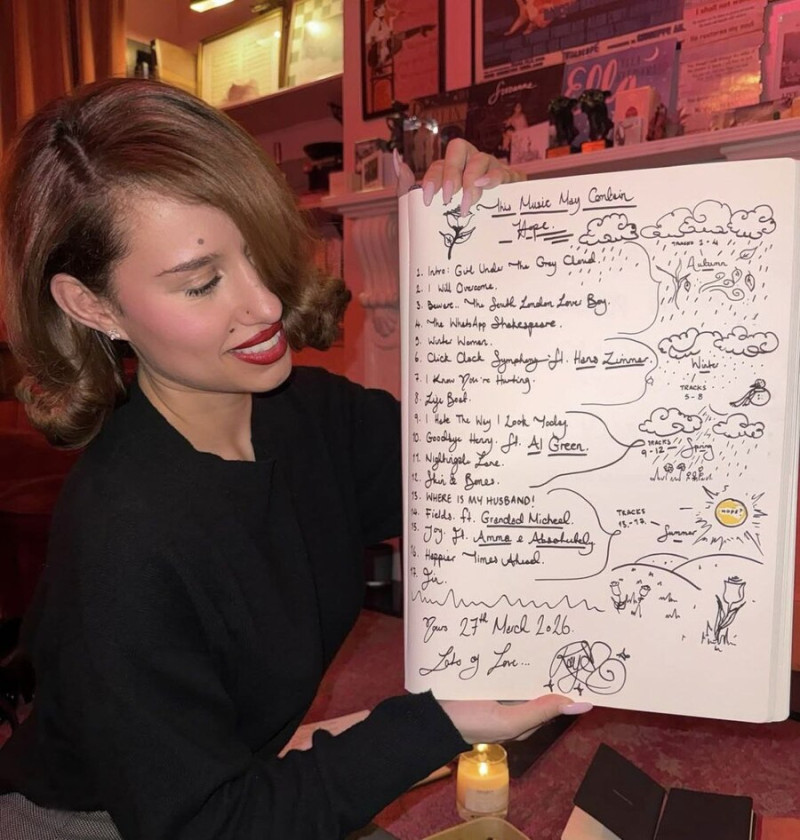 This Music May Contain
Hope.
1. Intro: Girl Under The Grey Cloud.
2. I Will Overcome.
3. Beware.. The South London Lover Boy.
4. The WhatsApp Shakespeare.
5. Winter Woman.
6. Click Clack Symphony ft. Hans Zimmer.
7. I Know You're Hurting.
8. Life Boat.
9. I Hate The Way I Look Today.
10. Goodbye Henry. ft. Al Green.
11. Nightingale Lane.
12. Skin & Bones.
13. WHERE IS MY HUSBAND!
14. Fields. ft. Grandad Micheal.
15. Joy. ft. Amma & Absolutely.
16. Happier Times Ahead.
17. Fin.
TRACKS 1-4
Autumn
Winter
TRACKS
5-8
TRACKS
9-12 — Spring
HOPE?
TRACKS
13-17 — Summer
Yours 27th March 2026.
Lots of Love...
Suzanne
Ella
I shall not want
to restores my soul